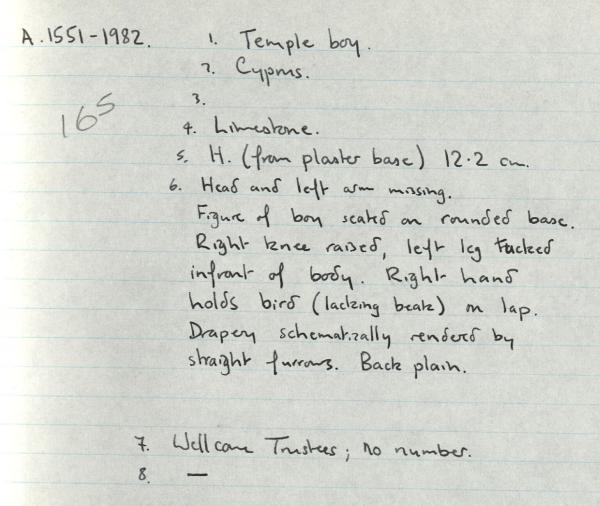 A.1551-1982.
1. Temple boy.
2. Cyprus.
165
3.
4. Limestone.
5. H. (from plaster base) 12.2 cm.
6. Head and left arm missing.
Figure of boy seated on rounded base.
Right knee raised, left leg tucked
infront of body. Right hand
holds bird (lacking beak) on lap.
Drapery schematically rendered by
straight furrows. Back plain.
7. Wellcome Trustees; no number.
8. —